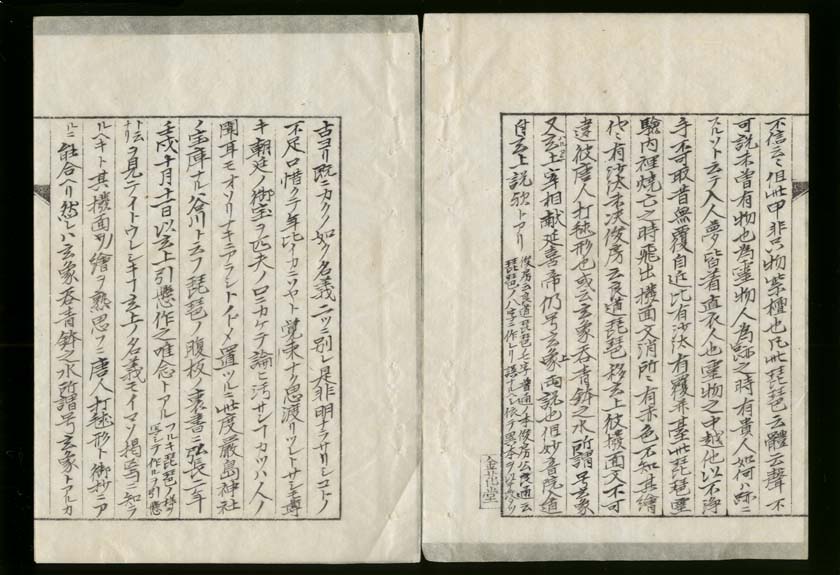 不信云々但此甲非只物紫檀也凡此琵琶云體云聲不
可説未曾有物也為靈物人為弥之時有貴人如何ハ弥ニ
スルソト云テ入人夢皆着直衣人也靈物之中越他以不浄
手不可取昔無覆自近比有沙汰有覆
驗内裡燒亡之時飛出撥面文消所々有赤色不知其繪
代々有沙汰未決俊房云良道琵琶移玄上彼撥面文不可
違彼唐人打毬形也或云玄象呑青鉢之水所謂号玄象
又玄上宰相献延喜帝仍号玄象上両説也但妙音院入道
付玄上説歟トアリ
俊房云良道琵琶
金花堂
古ヨリ既ニカクノ如ク名義二ツニ別レ是非明ナラサリシコトノ
不足口惜クテ年比イカニソヤト覚束ナク思渡リツレトサシモ尊
キ朝廷ノ御宝ヲ匹夫ノ口ニカケテ論ヒ汚サンコトカツハ人ノ
聞耳モオソリナキニアラシトイトメ置ツルニ此度嚴島神社
ノ宝庫ナル谷川ト云フ琵琶ノ腹板ノ裏書ニ弘長二年
壬戌十月十一日以玄上引懸作之唯念トアル
フルキ琵琶ノ様ヲ
写シテ作ルヲ引懸
ト云ナリ
ヲ見テイトウレシキコト玄上ノ名義モイマソ掲焉ニ知ラ
ルヘキト其撥面ノ繪ヲ熟思フニ唐人打毬形ト御抄ニア
ルニ能合ヘリ然レハ玄象呑青鉢之水所謂号玄象トアルカ